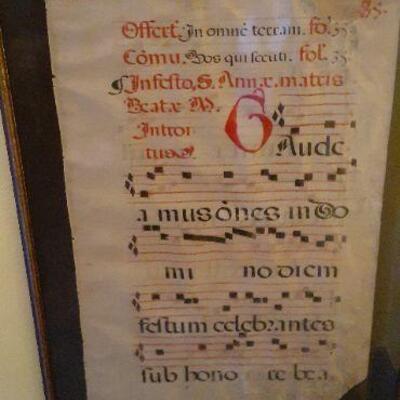 85.
Offert. In omnē terram. fol. 35
Cōmu. Vos qui secuti. fol. 35
¶ In festo, S. Annæ. matris
Beatæ M.
Introi
tus.
GAude
a mus ōnes in Do
mi no diem
festum celebrantes
sub hono re be a